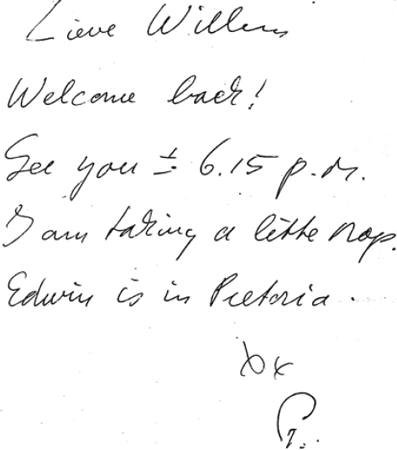 Lieve Willem
Welcome back!
See you ± 6.15 p.m.
I am taking a little nap.
Edwin is in Pretoria.
xx